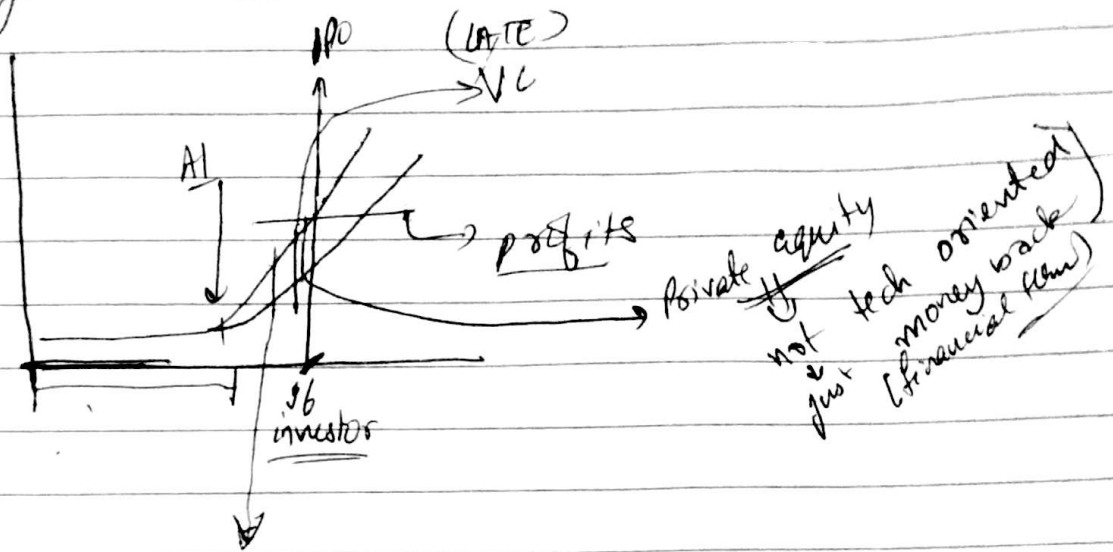 IPO
(LATE)
VC
AI
profits
Private equity
not tech oriented
just money back
(financial
investor